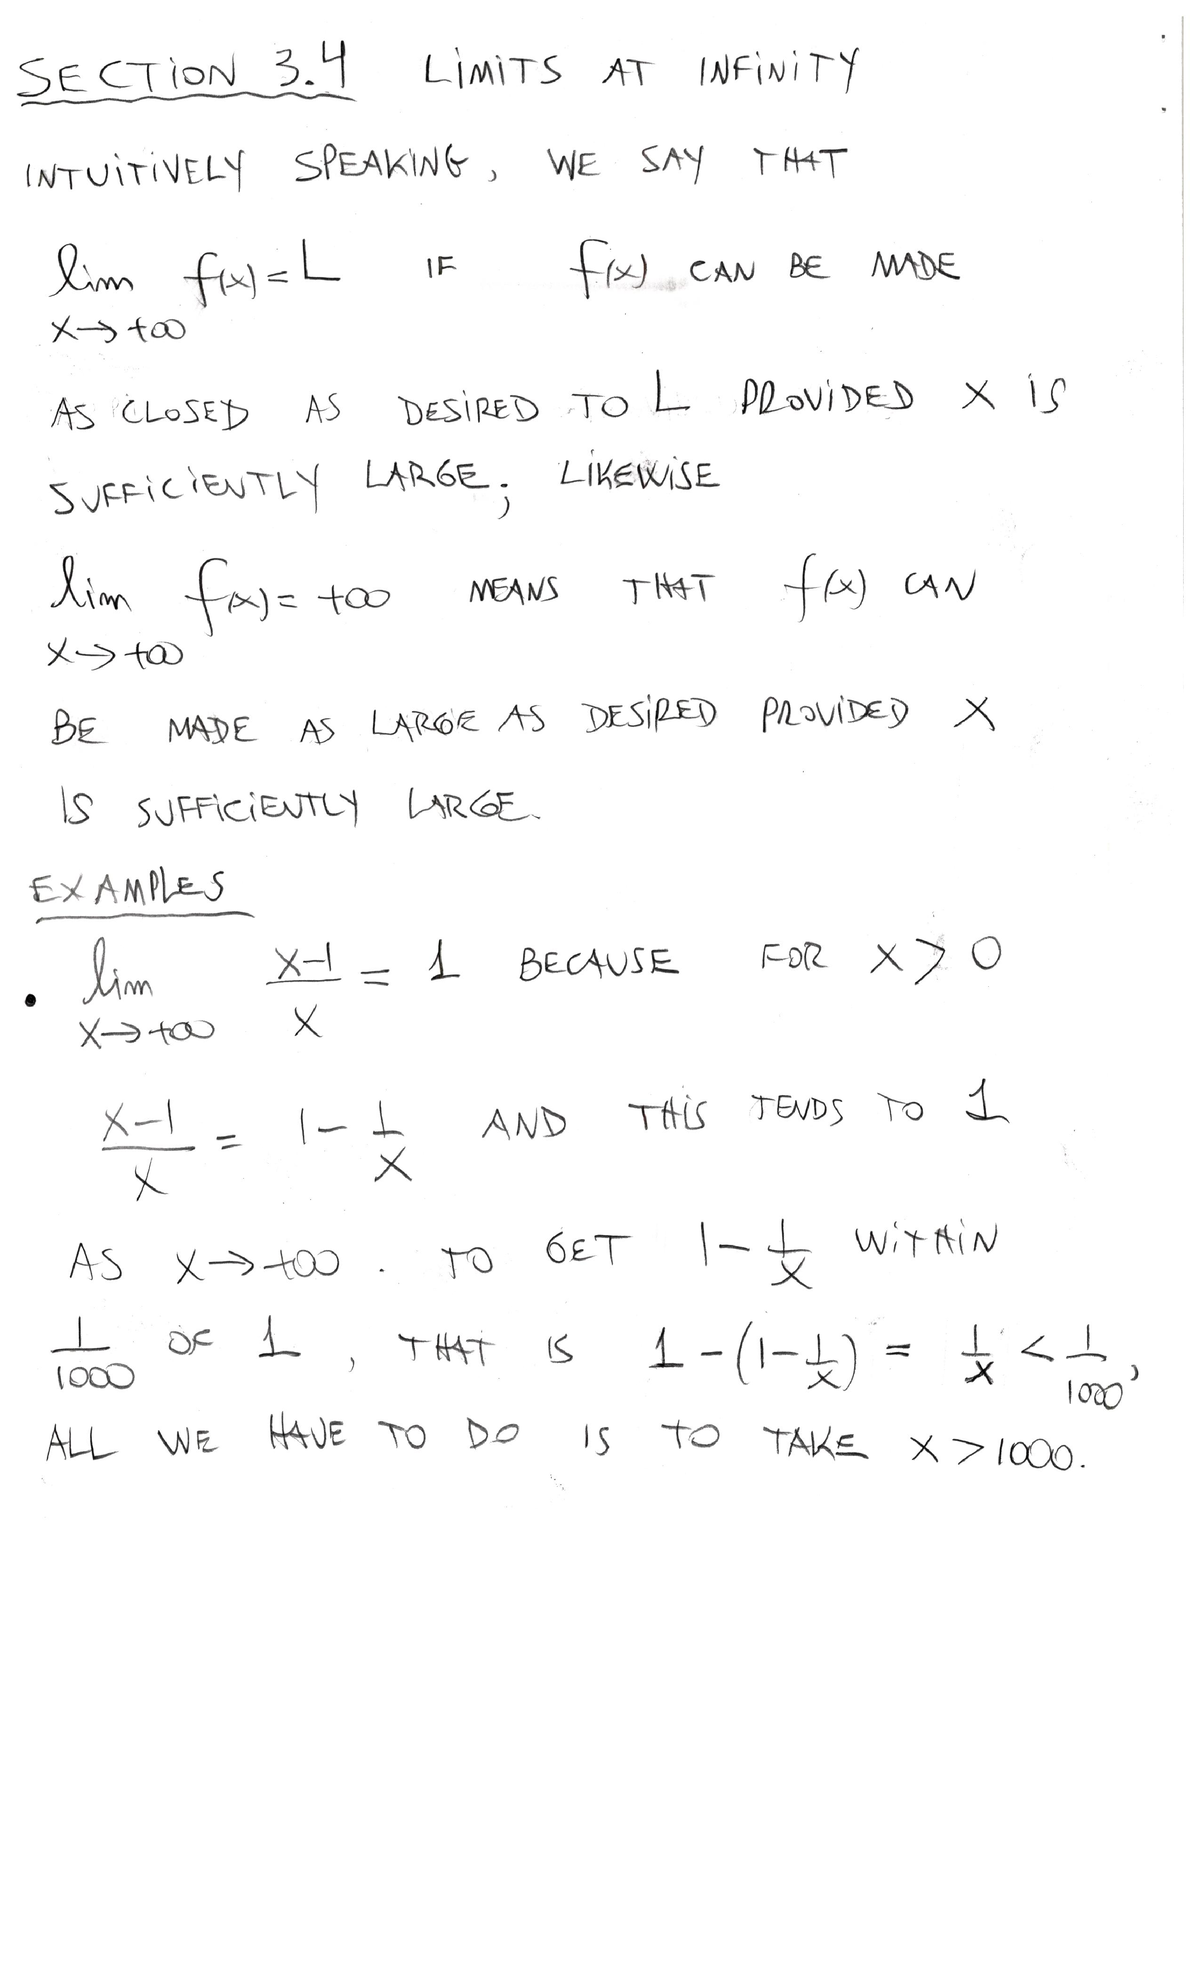 SECTION 3.4 LIMITS AT INFINITY
INTUITIVELY SPEAKING, WE SAY THAT
lim f(x) = L IF f(x) CAN BE MADE
x→+∞
AS CLOSED AS DESIRED TO L PROVIDED X IS
SUFFICIENTLY LARGE; LIKEWISE
lim f(x) = +∞ MEANS THAT f(x) CAN
x→+∞
BE MADE AS LARGE AS DESIRED PROVIDED X
IS SUFFICIENTLY LARGE.
EXAMPLES
• lim x-1/x = 1 BECAUSE FOR X > 0
x→+∞
x-1/x = 1 - 1/x AND THIS TENDS TO 1
AS X→+∞. TO GET 1 - 1/x WITHIN
1/1000 OF 1, THAT IS 1-(1-1/x) = 1/x < 1/1000,
ALL WE HAVE TO DO IS TO TAKE X > 1000.